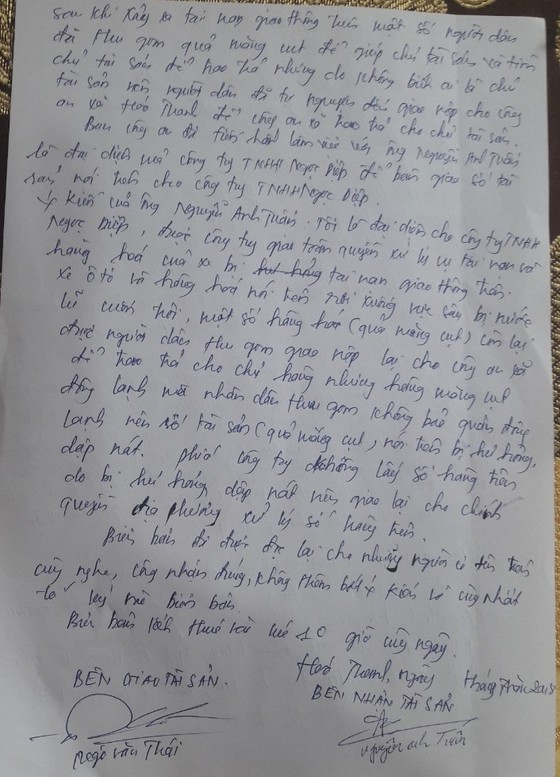 Sau khi xảy ra tai nạn giao thông trên một số người dân
đã thu gom quả măng cụt để giúp chủ tài sản và tìm
chủ tài sản để trao trả nhưng do không biết ai là chủ
tài sản nên người dân đã tự nguyện đến giao nộp cho công
an xã Hoá Thanh để công an xã trao trả cho chủ tài sản.
Ban công an đã tiến hành làm việc với ông Nguyễn Anh Tuấn
là đại diện của công ty TNHH Ngọc Diệp để bàn giao số tài
sản nói trên cho công ty TNHH Ngọc Diệp.
Ý kiến của ông Nguyễn Anh Tuấn: Tôi là đại diện cho công ty TNHH
Ngọc Diệp, được công ty giao toàn quyền xử lý vụ tai nạn và
hàng hoá của xe bị hư hỏng tai nạn giao thông trên.
Xe ô tô và hàng hoá nói trên rơi xuống vực sâu bị nước
lũ cuốn trôi, một số hàng hoá (quả măng cụt) còn lại
được người dân thu gom giao nộp lại cho công an xã
để trao trả cho chủ hàng nhưng hàng măng cụt
đông lạnh mà nhân dân thu gom không bảo quản đông
lạnh nên số tài sản (quả măng cụt) nói trên bị hư hỏng,
dập nát. phía công ty không lấy số hàng trên
do bị hư hỏng dập nát nên giao lại cho chính
quyền địa phương xử lý số hàng trên.
Biên bản đã được đọc lại cho những người có tên trên
cùng nghe, công nhận đúng, không thêm bớt ý kiến và cùng nhất
trí ký vào biên bản.
Biên bản kết thúc vào lúc 10 giờ cùng ngày.
Hoá Thanh, ngày tháng năm 2015
BÊN GIAO TÀI SẢN.
BÊN NHẬN TÀI SẢN
Ngô Văn Thái
Nguyễn Anh Tuấn